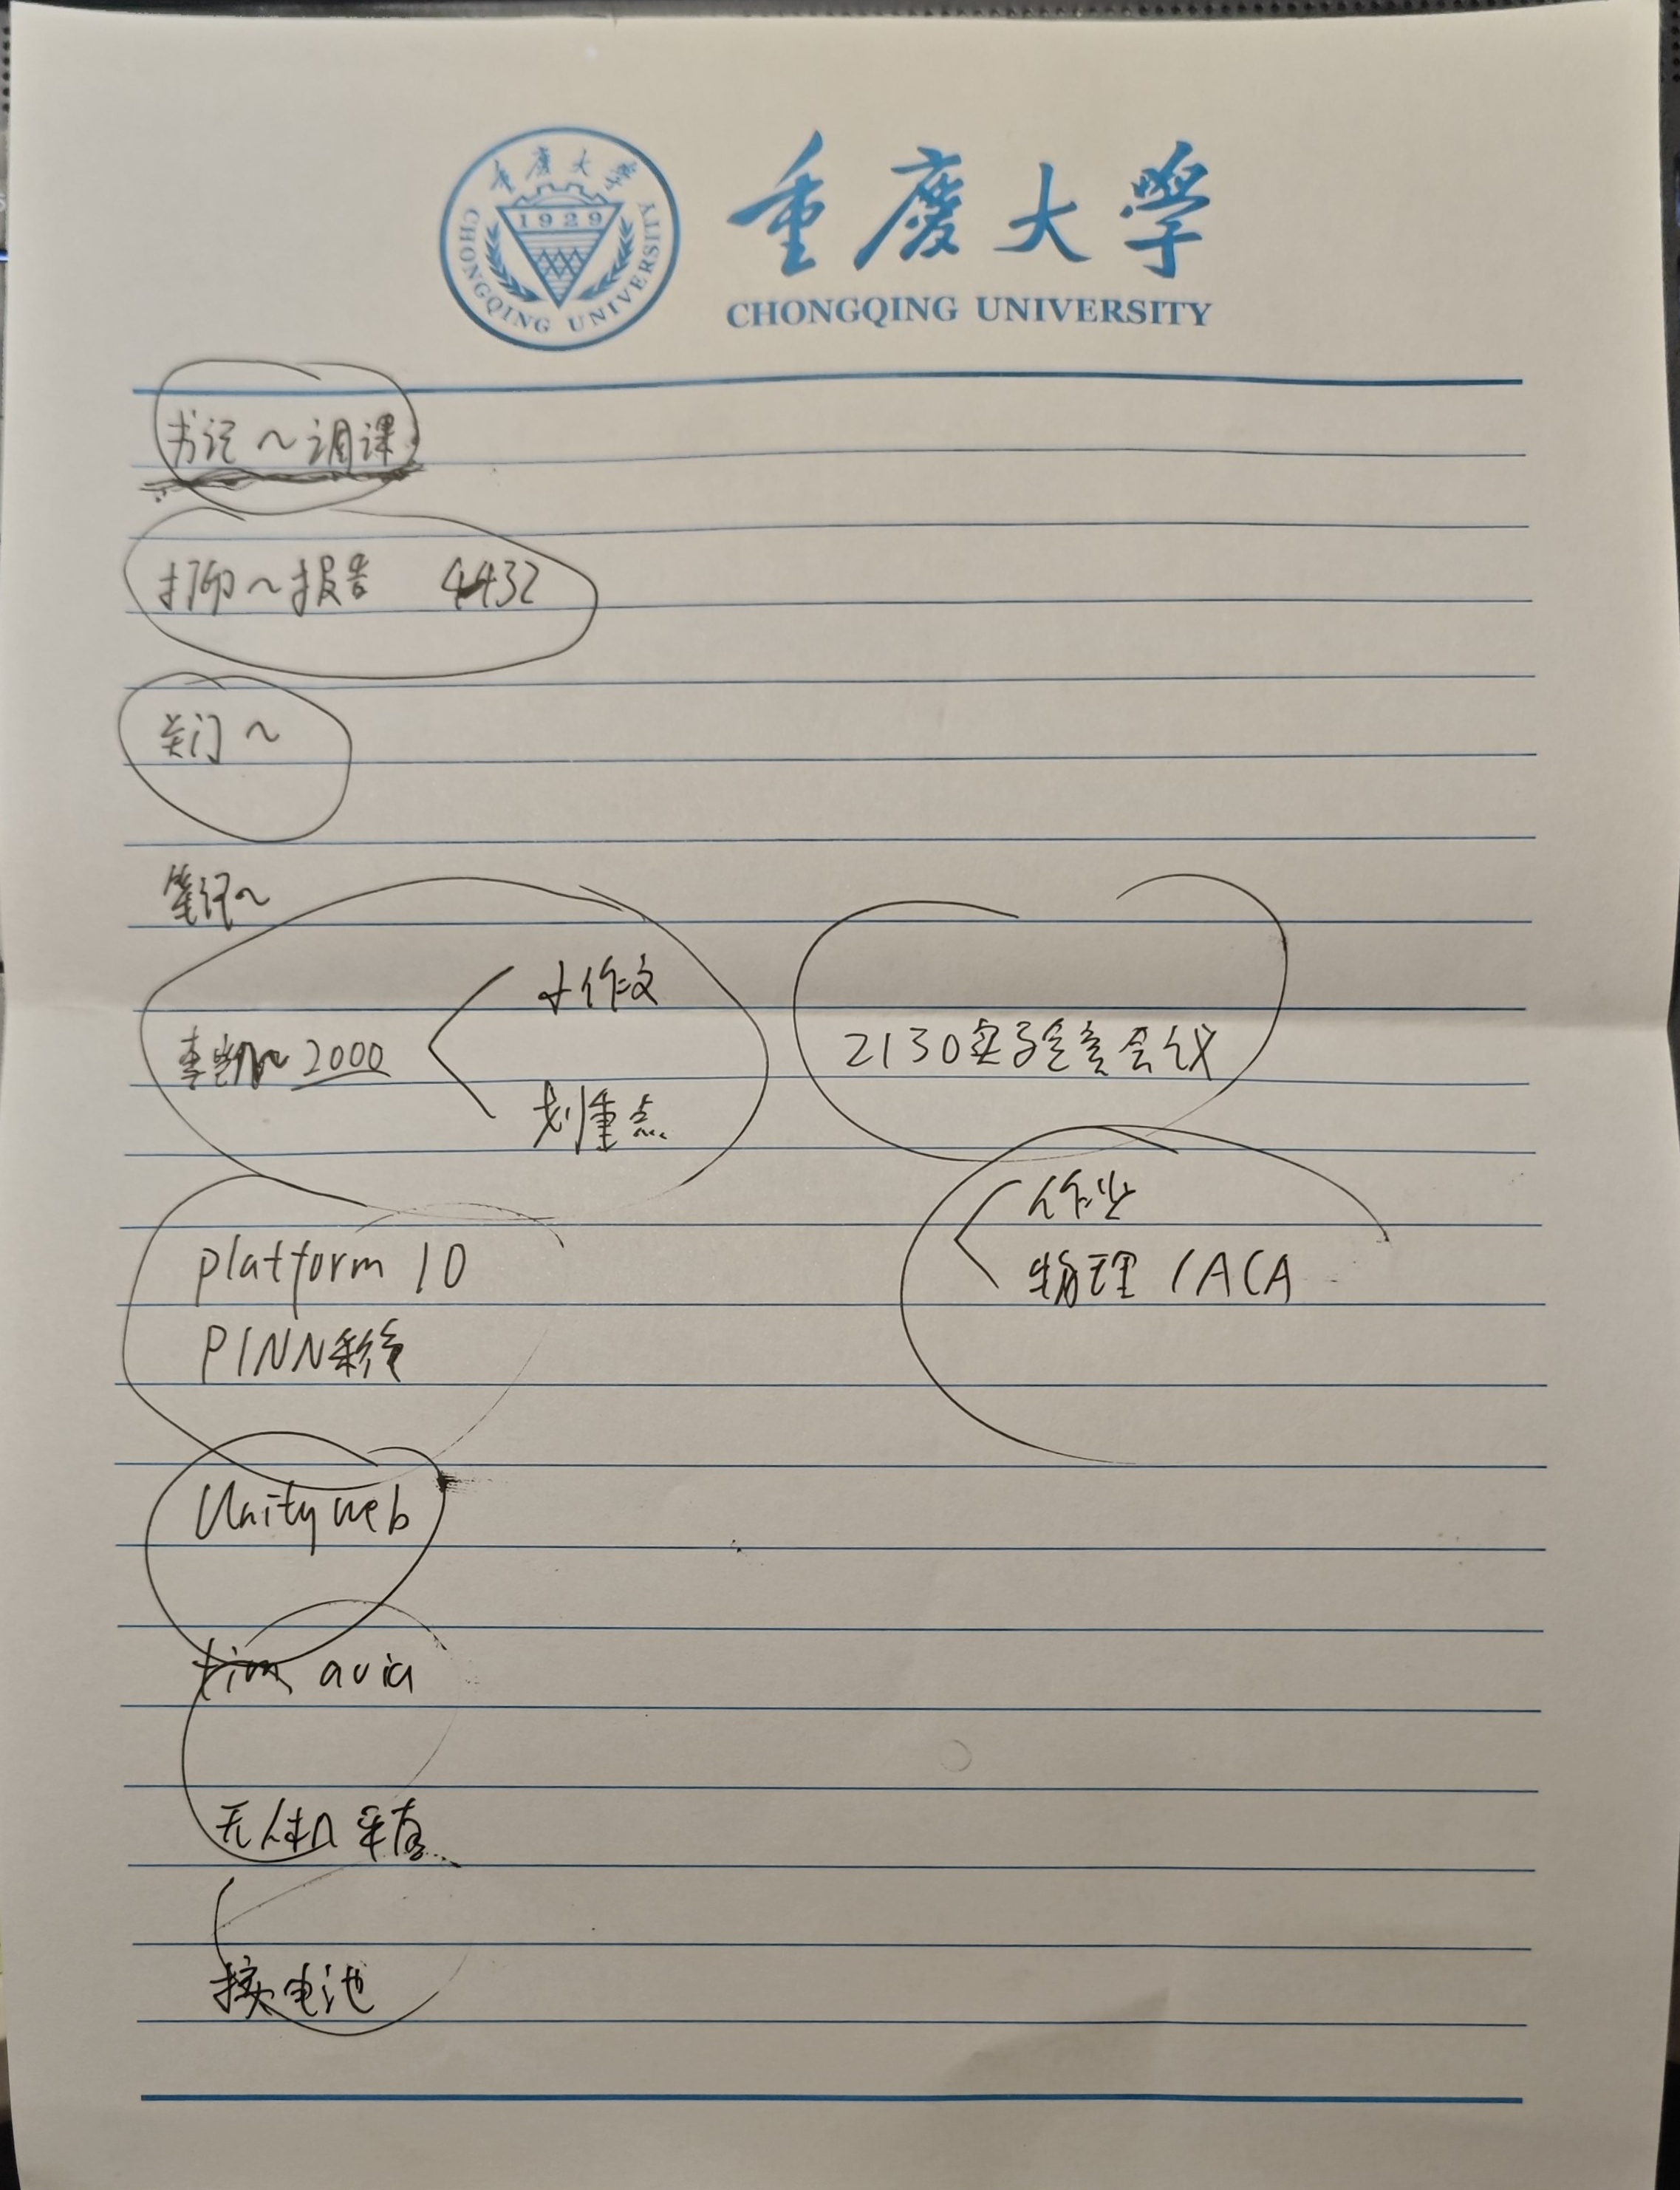 重庆大学
1929
CHONGQING UNIVERSITY
重庆大学
CHONGQING UNIVERSITY
书记～调课
打印～报告 4432
关门～
笔记～
李凯～2000
小作文
划重点
2130实验室会议
作业
物理 / ACA
platform 10
PINN系统
Unity web
avia
无人机
接电池